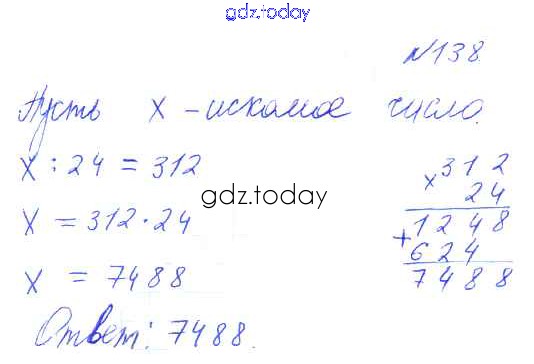 gdz.today
№138.
Пусть x - искомое число.
x : 24 = 312
x = 312 · 24
x = 7488
Ответ: 7488.
gdz.today
x 312
24
1248
+
624
7488